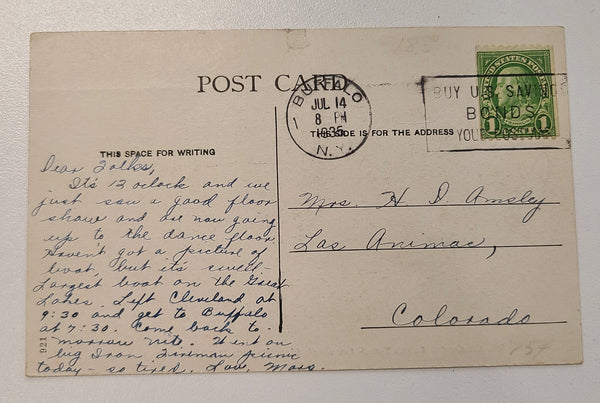 POST CARD
BUFFALO
JUL 14
8 PM
1935
N.Y.
1
BUY U.S. SAVINGS
BONDS
UNITED STATES POSTAGE
1 1
THIS SPACE FOR WRITING
THIS SIDE IS FOR THE ADDRESS
Dear Folks,
It's 12 oclock and we
just saw a good floor
show and are now going
up to the dance floor
Haven't got a picture of
boat, but it's swell -
Largest boat on the Great
Lakes. Left Cleveland at
9:30 and get to Buffalo
at 7:30. Come back to-
morrow nite. Went on
big Iron Fireman picnic
today - so tired. Love, Marg.
Mrs. H. D Amsley
Las Animas,
Colorado
921